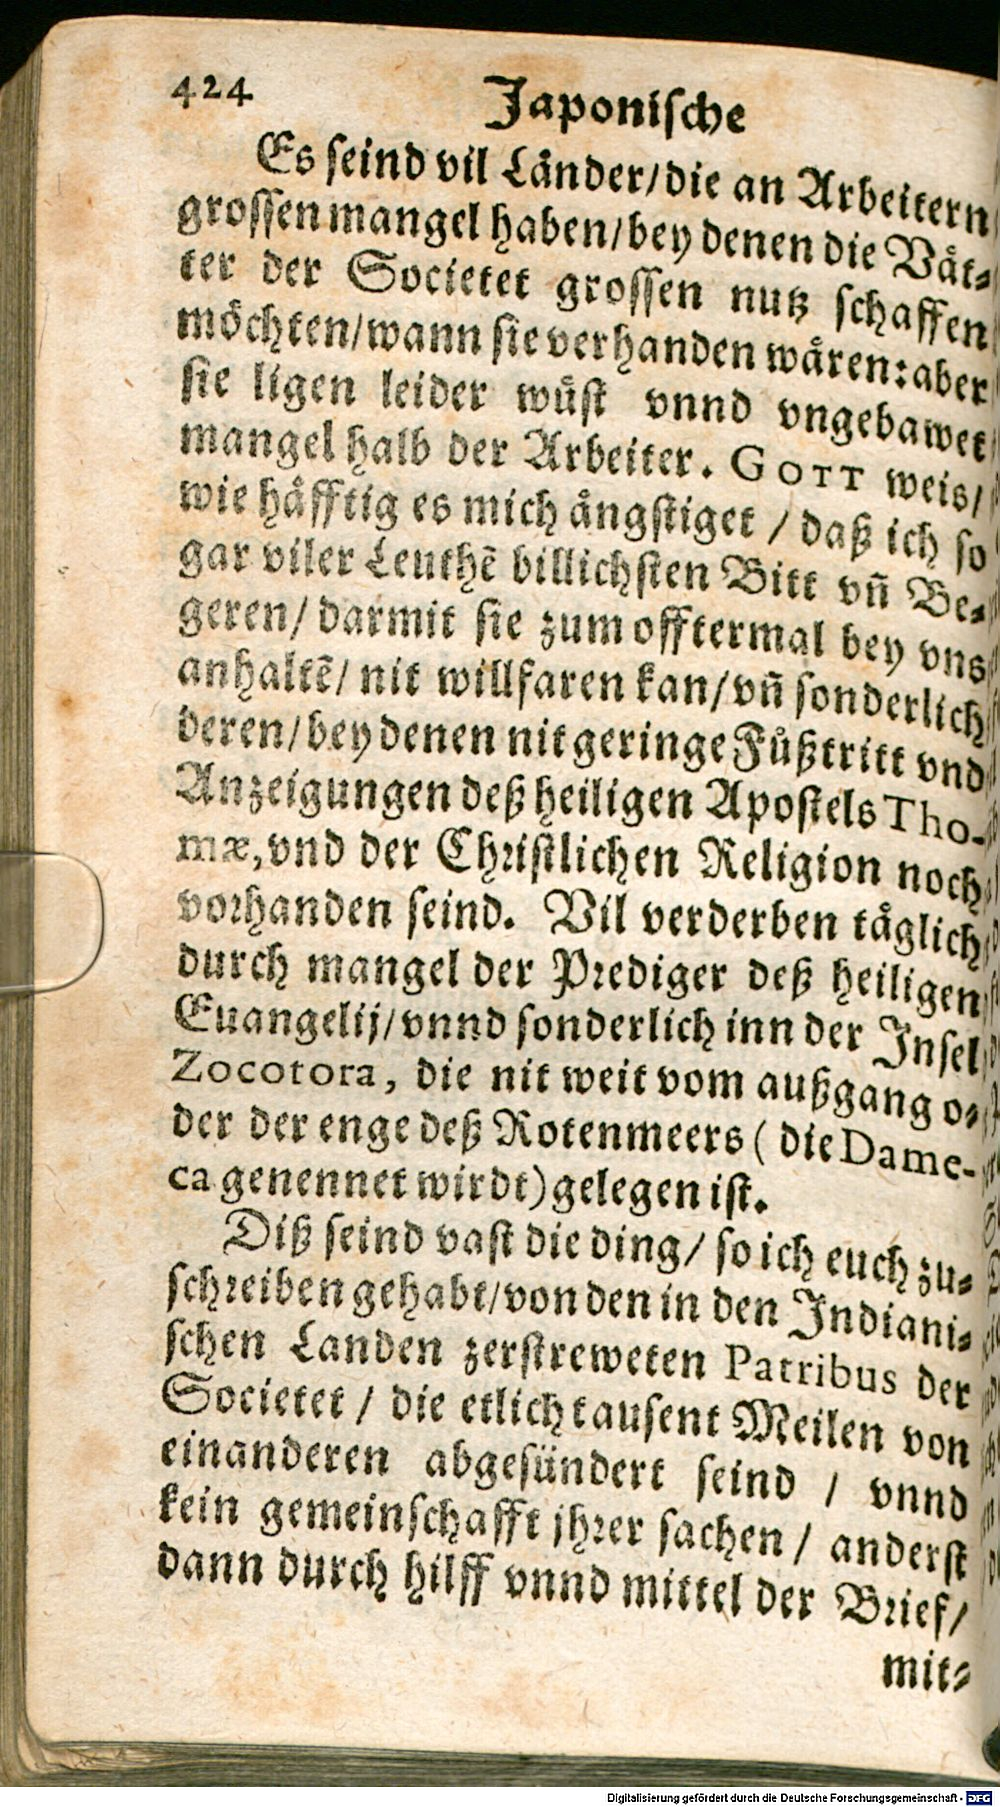 424 Japonische
Es seind vil Laͤnder/die an Arbeitern
grossen mangel haben/bey denen die Vaͤt-
ter der Societet grossen nutz schaffen
moͤchten/wann sie verhanden waͤren: aber
sie ligen leider wuͤst vnnd vngebawet
mangel halb der Arbeiter. GOTT weis/
wie haͤfftig es mich aͤngstiget / daß ich so
gar viler Leuthẽ billichsten Bitt vñ Be-
geren/ darmit sie zum offtermal bey vns
anhaltẽ/ nit willfaren kan/vñ sonderlich
deren/bey denen nit geringe Fuͤßtritt vnd
Anzeigungen deß heiligen Apostels Tho-
mæ, vnd der Christlichen Religion noch
vorhanden seind. Vil verderben taͤglich
durch mangel der Prediger deß heiligen
Euangelij/vnnd sonderlich inn der Insel
Zocotora, die nit weit vom außgang o-
der der enge deß Rotenmeers ( die Dame-
ca genennet wirdt)gelegen ist.
Diß seind vast die ding/ so ich euch zu-
schreiben gehabt/von den in den Indiani-
schen Landen zerstreweten Patribus der
Societet / die etlich tausent Meilen von
einanderen abgesündert seind / vnnd
kein gemeinschafft jhrer sachen / anderst
dann durch hilff vnnd mittel der Brief/
mit-
Digitalisierung gefördert durch die Deutsche Forschungsgemeinschaft - DFG